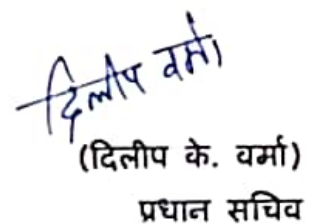 दिलीप वर्मा
(दिलीप के. वर्मा)
प्रधान सचिव